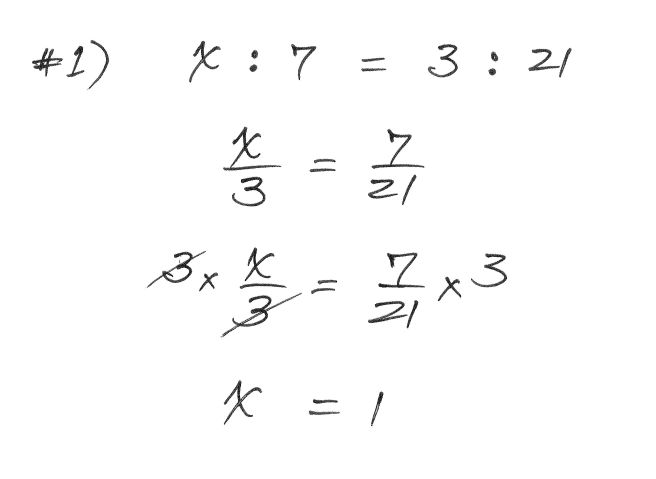 #1) x : 7 = 3 : 21
x/3 = 7/21
3 × x/3 = 7/21 × 3
x = 1